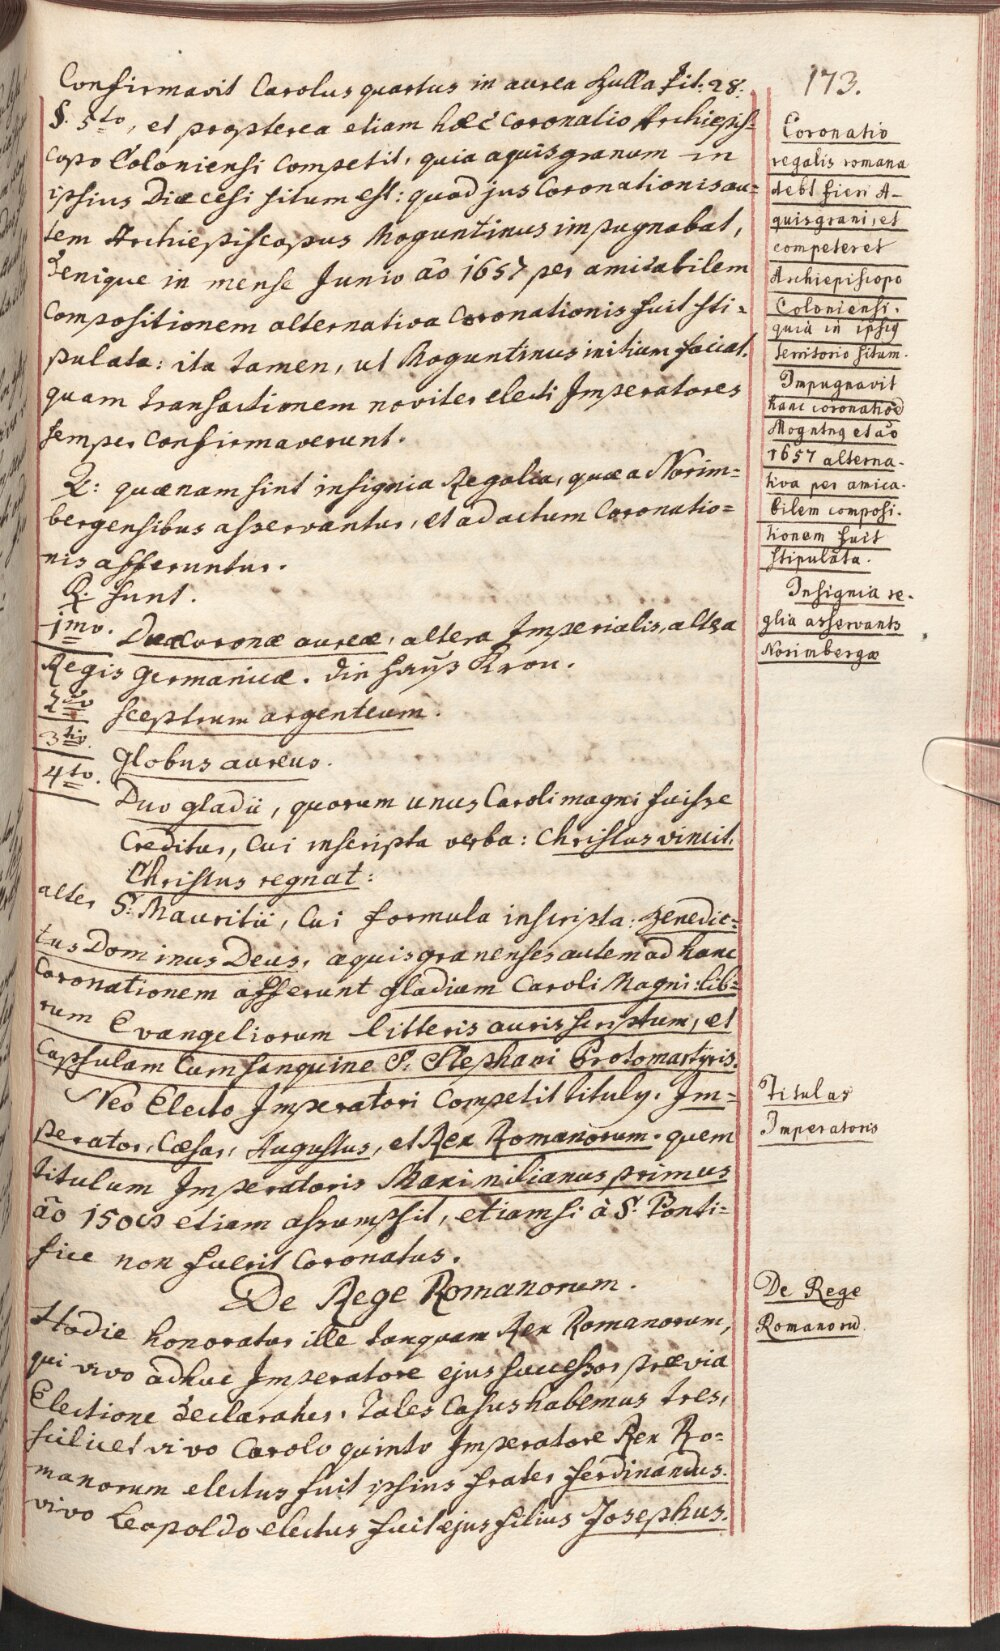 173.
Confirmavit Carolus quartus in aurea Bulla tit. 28.
§. 5to, et propterea etiam haec coronatio Archiepis=
copo Coloniensi Competit, quia aquisgranum in
ipsius Dioecesi situm est: quod jus Coronationis au=
tem Archiepiscopus Moguntinus impugnabat,
Denique in mense Junio aõ 1657 per amicabilem
Compositionem alternativa Coronationis fuit sti=
pulata: ita tamen, ut Moguntinus initium faciat.
quam transactionem noviter electi Imperatores
semper Confirmaverunt.
Q: quaenam sint insignia Regalia, quae a Norim=
bergensibus asservantur, et ad actum Coronatio=
nis afferuntur.
R: sunt.
1mo. Duae coronae aureae, altera Imperialis, altera
Regis germaniae. die Hauß Kron.
2do sceptrum argenteum.
3tio. globus aureus.
4to. Duo gladii, quorum unus Caroli magni fuisse
Creditur, Cui inscripta verba: Christus vincit,
Christus regnat:
alter S: Mauritii, Cui formula inscripta: Benedic=
tus Dominus Deus. aquisgranenses autem ad hanc
Coronationem afferunt gladium Caroli Magni: lib=
rum Evangeliorum litteris aureis scriptum, et
Capsulam Cum sanguine S: Stephani Protomartyris.
Neo Electo Imperatori Competit tituly. Im=
perator, Caesar, Augustus, et Rex Romanorum. quem
titulum Imperatoris Maximilianus primus
aõ 1508 etiam assumpsit, etiamsi à S: Ponti=
fice non fuerit Coronatus.
De Rege Romanorum.
Hodie honoratur ille tanquam Rex Romanorum,
qui vivo adhuc Imperatore ejus successor praevia
Electione declaratur. tales Casus habemus tres,
scilicet vivo Carolo quinto Imperatore Rex Ro=
manorum electus fuit ipsius frater ferdinandus.
vivo Leopoldo electus fuit ejus filius Josephus.
Coronatio
regalis romana
debt fieri A-
quisgrani, et
competeret
Archiepiscopo
Coloniensi.
quia in ipsiy
territorio situm.
Impugnavit
hanc coronatioẽ
Mogntnq et aõo
1657 alterna-
tiva per amica-
bilem composi-
tionem fuit
stipulata.
Insignia re-
glia asservants
Norimbergae
Titulus
Imperatoris
De Rege
Romanorũ